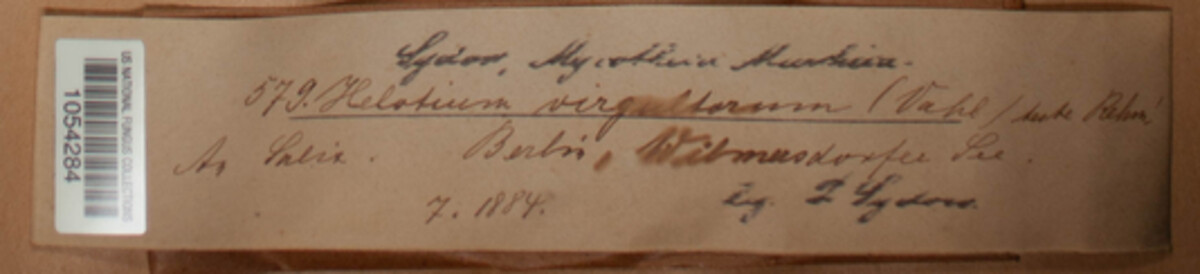 Sydow, Mycotheca Marchica.
579. Helotium virgultorum (Vahl) teste Rehm
An Salix. Berlin, Wilmersdorfer See.
7. 1884. leg. P Sydow.
US NATIONAL FUNGUS COLLECTIONS
1054284